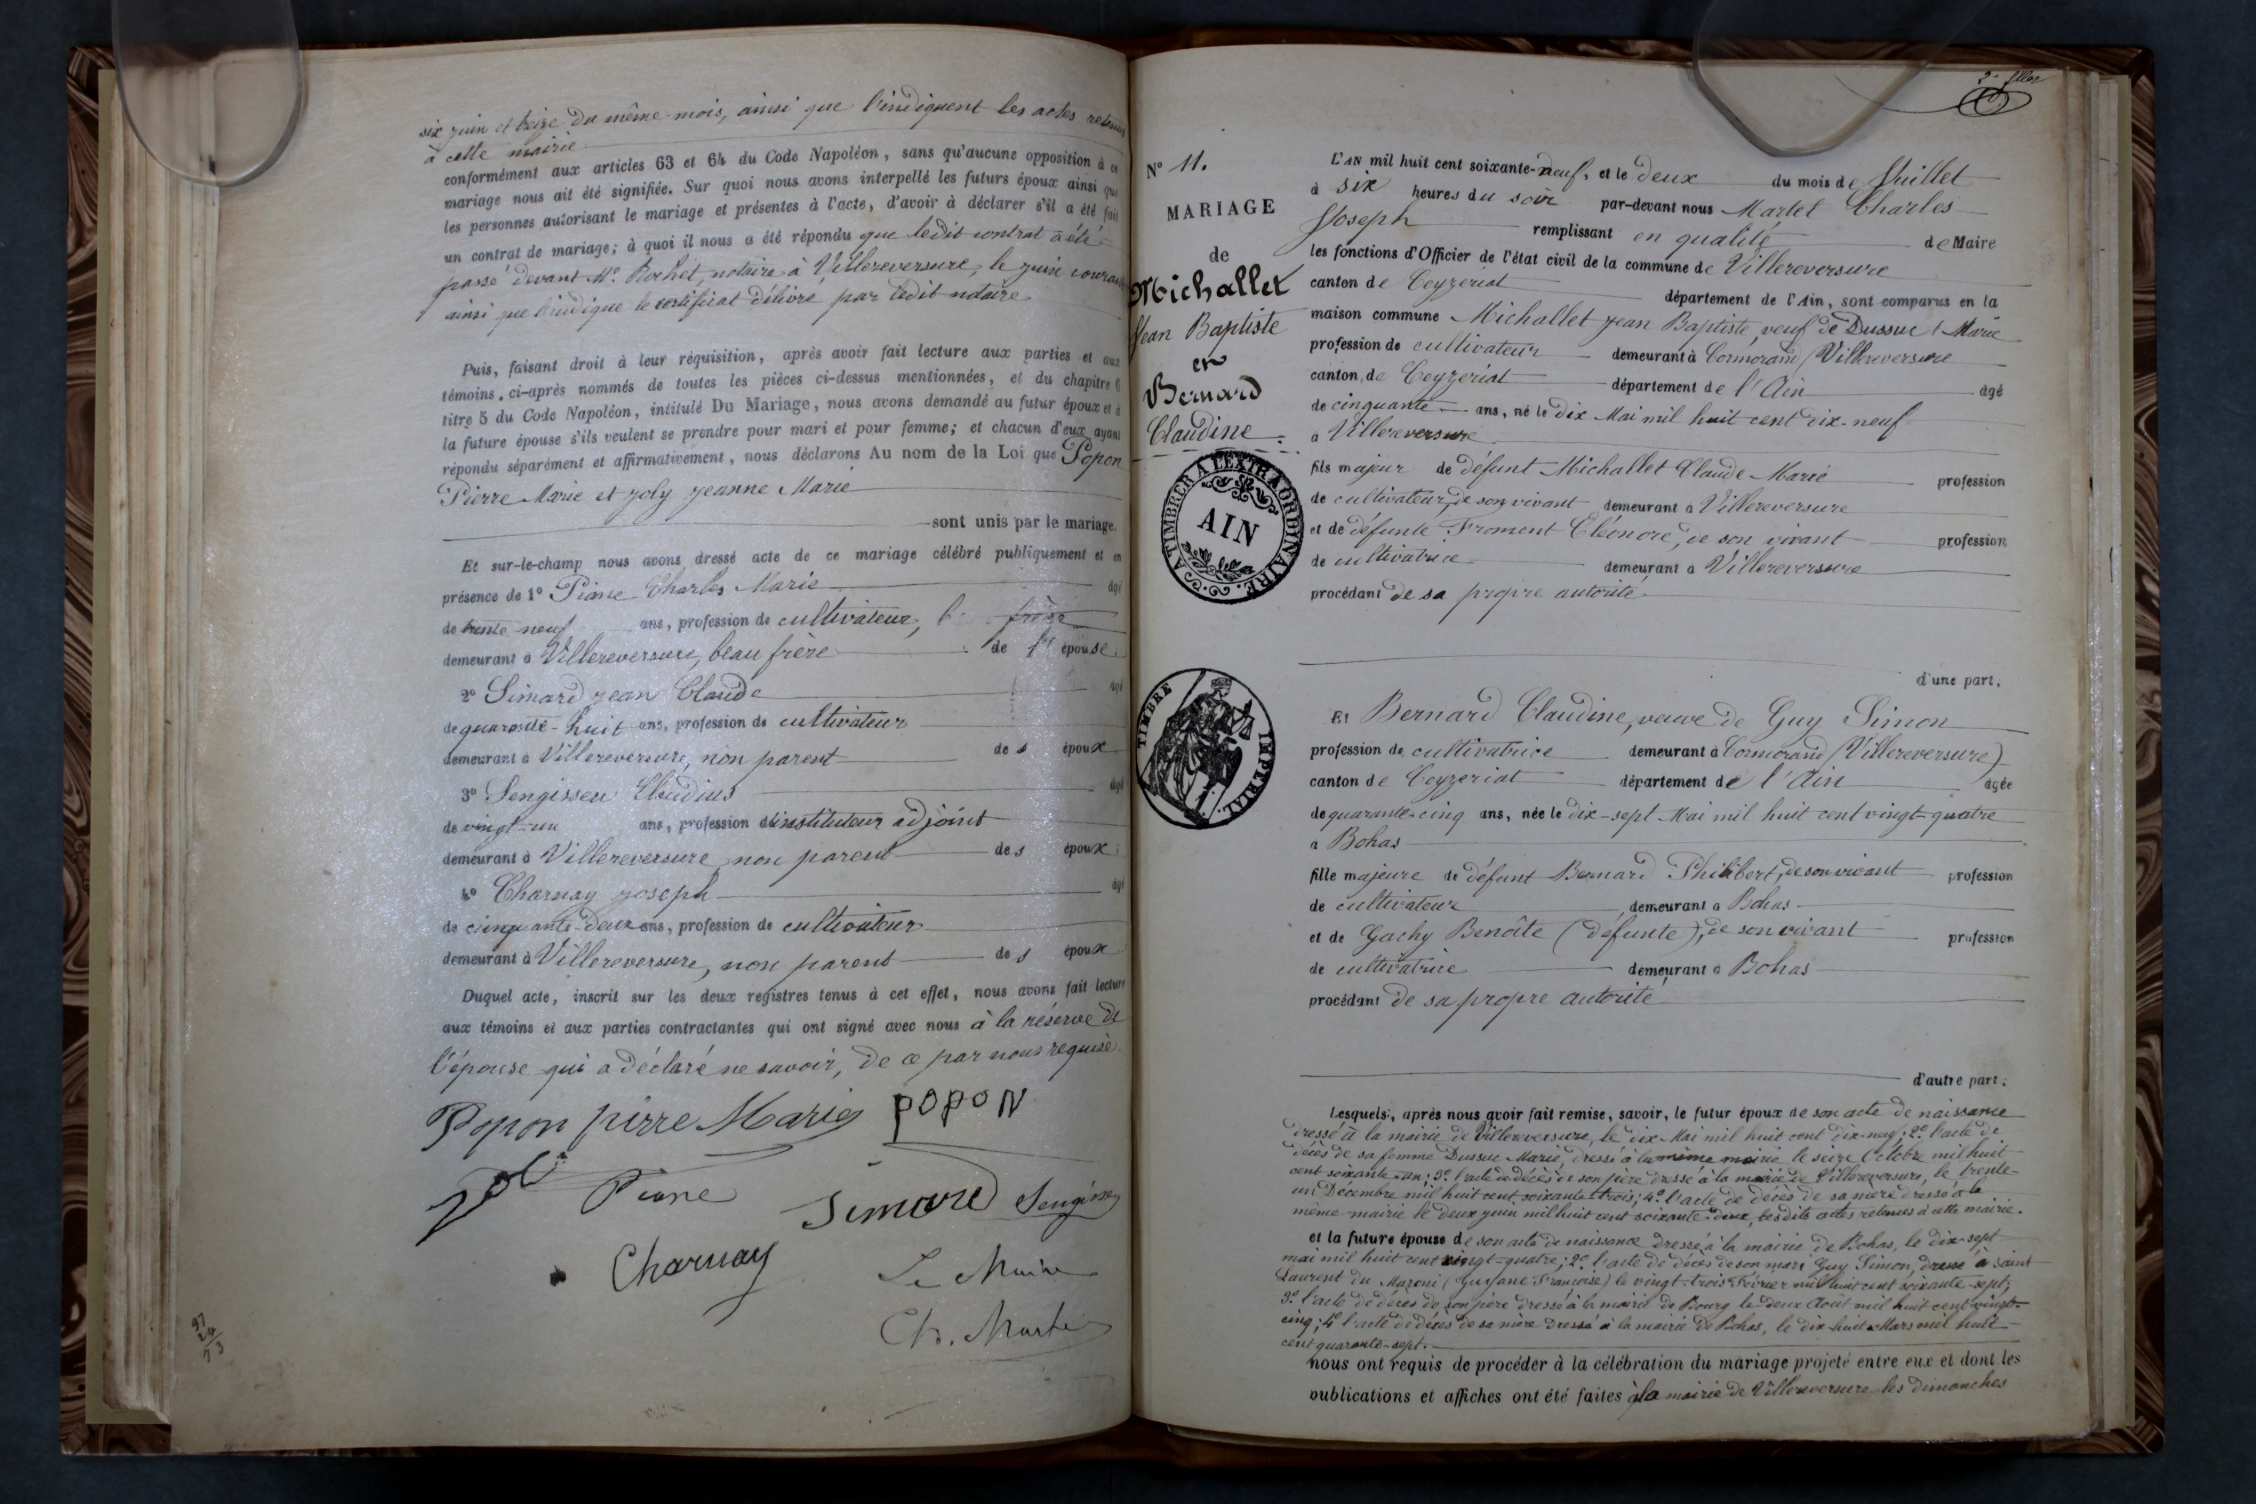 six juin et treize du même mois, ainsi que l'indiquent les actes retenus
à cette mairie
conformément aux articles 63 et 64 du Code Napoléon, sans qu'aucune opposition à ce
mariage nous ait été signifiée. Sur quoi nous avons interpellé les futurs époux ainsi que
les personnes autorisant le mariage et présentes à l'acte, d'avoir à déclarer s'il a été fait
un contrat de mariage; à quoi il nous a été répondu que ledit contrat a été
passé devant Me. Rochet, notaire à Villereversure, le juin courant
ainsi que l'indique le certificat délivré par ledit notaire
Puis, faisant droit à leur réquisition, après avoir fait lecture aux parties et aux
témoins, ci-après nommés de toutes les pièces ci-dessus mentionnées, et du chapitre 6
titre 5 du Code Napoléon, intitulé Du Mariage, nous avons demandé au futur époux et à
la future épouse s'ils veulent se prendre pour mari et pour femme; et chacun d'eux ayant
répondu séparément et affirmativement, nous déclarons Au nom de la Loi que Popon
Pierre Marie et Joly Jeanne Marie
sont unis par le mariage.
Et sur-le-champ nous avons dressé acte de ce mariage célébré publiquement et en
présence de 1° Piane Charles Marie âgé
de trente neuf ans, profession de cultivateur, frère
demeurant à Villereversure, beau frère de l' épouse
2° Simard Jean Claude âgé
de quarante-huit ans, profession de cultivateur
demeurant à Villereversure, non parent des époux
3° Sengissen Claudius âgé
de vingt-un ans, profession d'instituteur adjoint
demeurant à Villereversure non parent des époux
4° Charnay Joseph âgé
de cinquante-deux ans, profession de cultivateur
demeurant à Villereversure, non parent des époux
Duquel acte, inscrit sur les deux registres tenus à cet effet, nous avons fait lecture
aux témoins et aux parties contractantes qui ont signé avec nous à la réserve de
l'épouse qui a déclaré ne savoir, de ce par nous requise.
Popon pirre Marie POPON
Joli Piane Simard Sengissen
Charnay Le Maire
Ch. Martel
97
24
73
2e fllet
N° 11.
MARIAGE
de
Michallet
Jean Baptiste
et
Bernard
Claudine.
A TIMBRER A L'EXTRAORDINAIRE.
AIN
TIMBRE IMPERIAL.
L'AN mil huit cent soixante-neuf, et le deux du mois de Juillet
à six heures du soir par-devant nous Martel Charles
Joseph remplissant en qualité de Maire
les fonctions d'Officier de l'état civil de la commune de Villereversure
canton de Ceyzeriat département de l'Ain, sont comparus en la
maison commune Michallet Jean Baptiste, veuf de Dussuc Marie
profession de cultivateur demeurant à Cormorand (Villereversure
canton de Ceyzeriat département de l'Ain âgé
de cinquante ans, né le dix Mai mil huit cent dix-neuf
à Villereversure
fils majeur de défunt Michallet Claude-Marie profession
de cultivateur, de son vivant demeurant à Villereversure
et de défunte Froment Eléonore, de son vivant profession
de cultivatrice demeurant à Villereversure
procédant de sa propre autorité
d'une part.
Et Bernard Claudine, veuve de Guy Simon
profession de cultivatrice demeurant à Cormorand (Villereversure)
canton de Ceyzeriat département de l'Ain âgée
de quarante-cinq ans, née le dix-sept Mai mil huit cent vingt-quatre
à Bohas
fille majeure de défunt Bernard Philibert, de son vivant profession
de cultivateur demeurant à Bohas
et de Gachy Benoîte (défunte), de son vivant profession
de cultivatrice demeurant à Bohas
procédant de sa propre autorité
d'autre part.
Lesquels, après nous avoir fait remise, savoir, le futur époux de son acte de naissance
dressé à la mairie de Villereversure, le dix Mai mil huit cent dix-neuf; 2° l'acte de
décès de sa femme Dussuc Marie, dressé à la même mairie le seize Octobre mil huit
cent soixante-un; 3° l'acte de décès de son père dressé à la mairie de Villereversure, le trente-
un Décembre mil huit cent soixante trois; 4° l'acte de décès de sa mère dressé à la
même mairie le deux juin mil huit cent soixante-deux, lesdits actes retenus à cette mairie.
et la future épouse de son acte de naissance dressé à la mairie de Bohas, le dix-sept
mai mil huit cent vingt-quatre; 2° l'acte de décès de son mari Guy Simon, dressé à Saint
Laurent du Maroni (Guyane Française) le vingt-trois Février mil huit cent soixante-sept;
3° l'acte de décès de son père dressé à la mairie de Bourg le deux Août mil huit cent vingt-
cinq; 4° l'acte de décès de sa mère dressé à la mairie de Bohas, le dix-huit Mars mil huit
cent quarante-sept.
nous ont requis de procéder à la célébration du mariage projeté entre eux et dont les
publications et affiches ont été faites à la mairie de Villereversure les dimanches